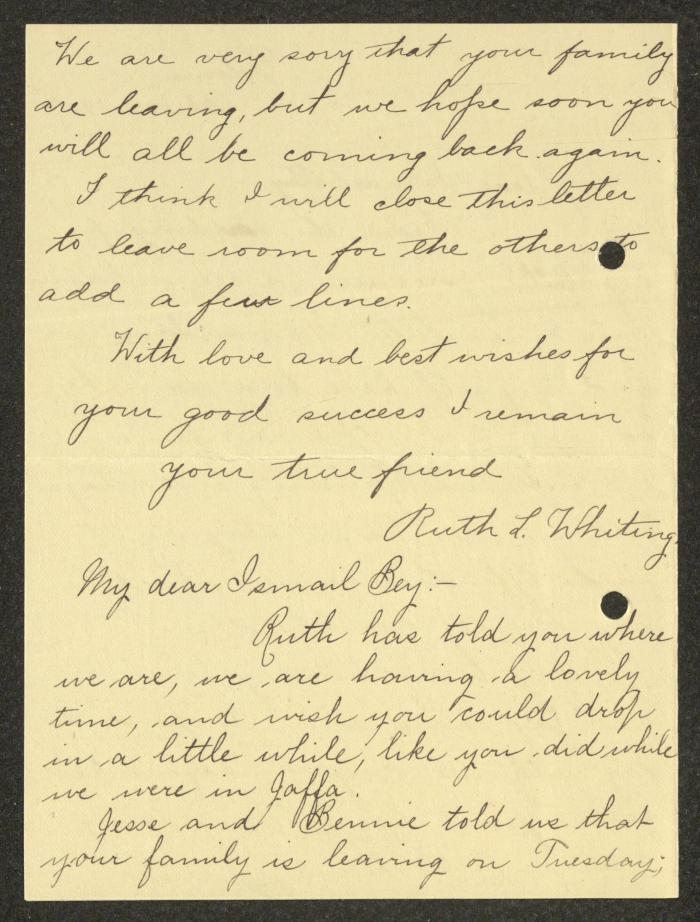 We are very sory that your family
are leaving, but we hope soon you
will all be coming back again.
I think I will close this letter
to leave room for the others to
add a few lines.
With love and best wishes for
your good success I remain
your true friend
Ruth L. Whiting.
My dear Ismail Bey:-
Ruth has told you where
we are, we are having a lovely
time, and wish you could drop
in a little while, like you did while
we were in Jaffa.
Jesse and Bennie told us that
your family is leaving on Tuesday;